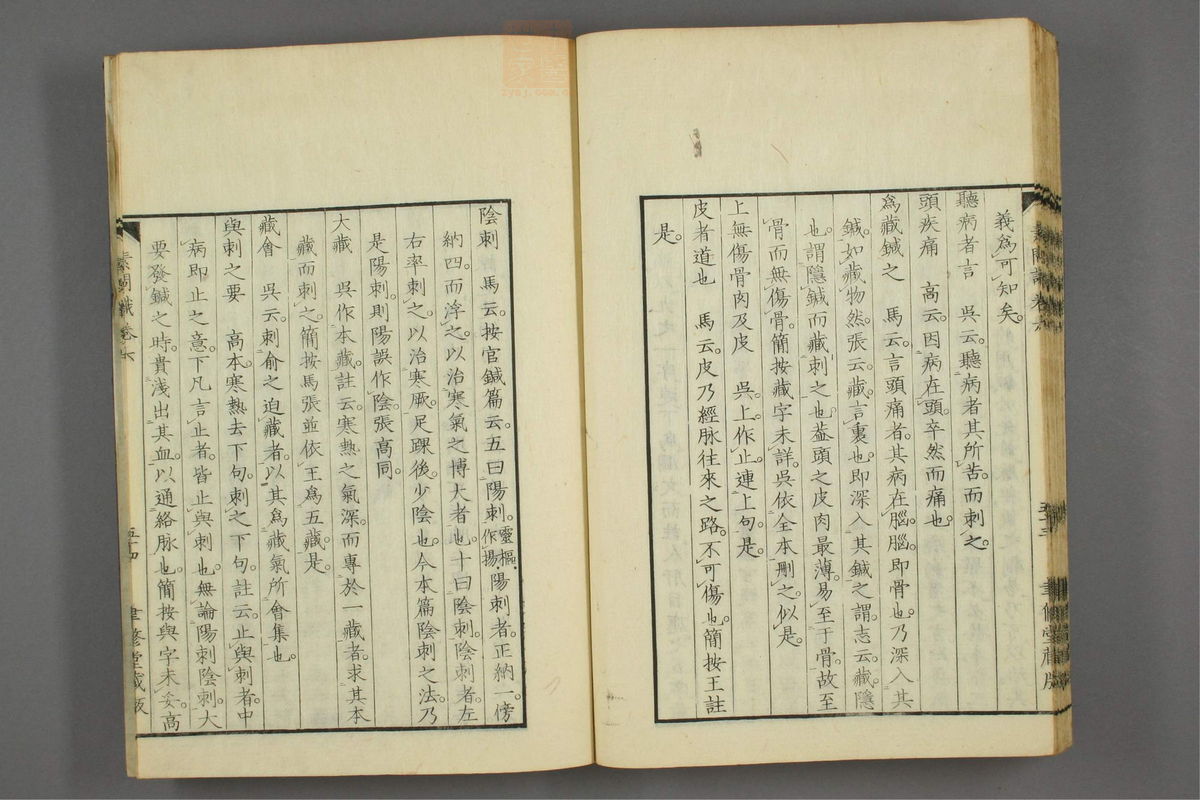 義爲可知矣。
聽病者言　吳云。聽病者其所苦而刺之。
頭疾痛　高云。因病在頭。卒然而痛也。
爲藏鍼之　馬云。言頭痛者。其病在腦。腦即骨也。乃深入其
鍼。如藏物然。張云。藏言裏也。即深入其鍼之謂。志云。藏隱
也。謂隱鍼而藏刺之也。葢頭之皮肉最薄。易至于骨。故至
骨而無傷骨。簡按藏字未詳。吳依全本刪之。似是。
上無傷骨肉及皮　吳上作止。連上句。是。
皮者道也　馬云。皮乃經脉往來之路。不可傷也。簡按王註
是。
陰刺　馬云。按官鍼篇云。五曰陽刺。靈樞作揚。陽刺者。正納一。傍
納四。而浮之。以治寒氣之博大者也。十曰陰刺。陰刺者。左
右率刺之。以治寒厥。足踝後少陰也。今本篇陰刺之法。乃
是陽刺。則陽誤作陰。張高同。
大藏　吳作本藏。註云。寒熱之氣深。而專於一藏者。求其本
藏而刺之。簡按馬張並依王爲五藏。是。
藏會　吳云。刺俞之迫藏者。以其爲藏氣所會集也。
與刺之要　高本。寒熱去下句。刺之下句。註云。止與刺者。中
病即止之意。下凡言止者。皆止與刺也。無論陽刺陰刺。大
要發鍼之時。貴淺出其血。以通絡脉也。簡按與字未妥。高
素問識卷六
五十四
聿修堂藏版
五十三
聿修堂藏版